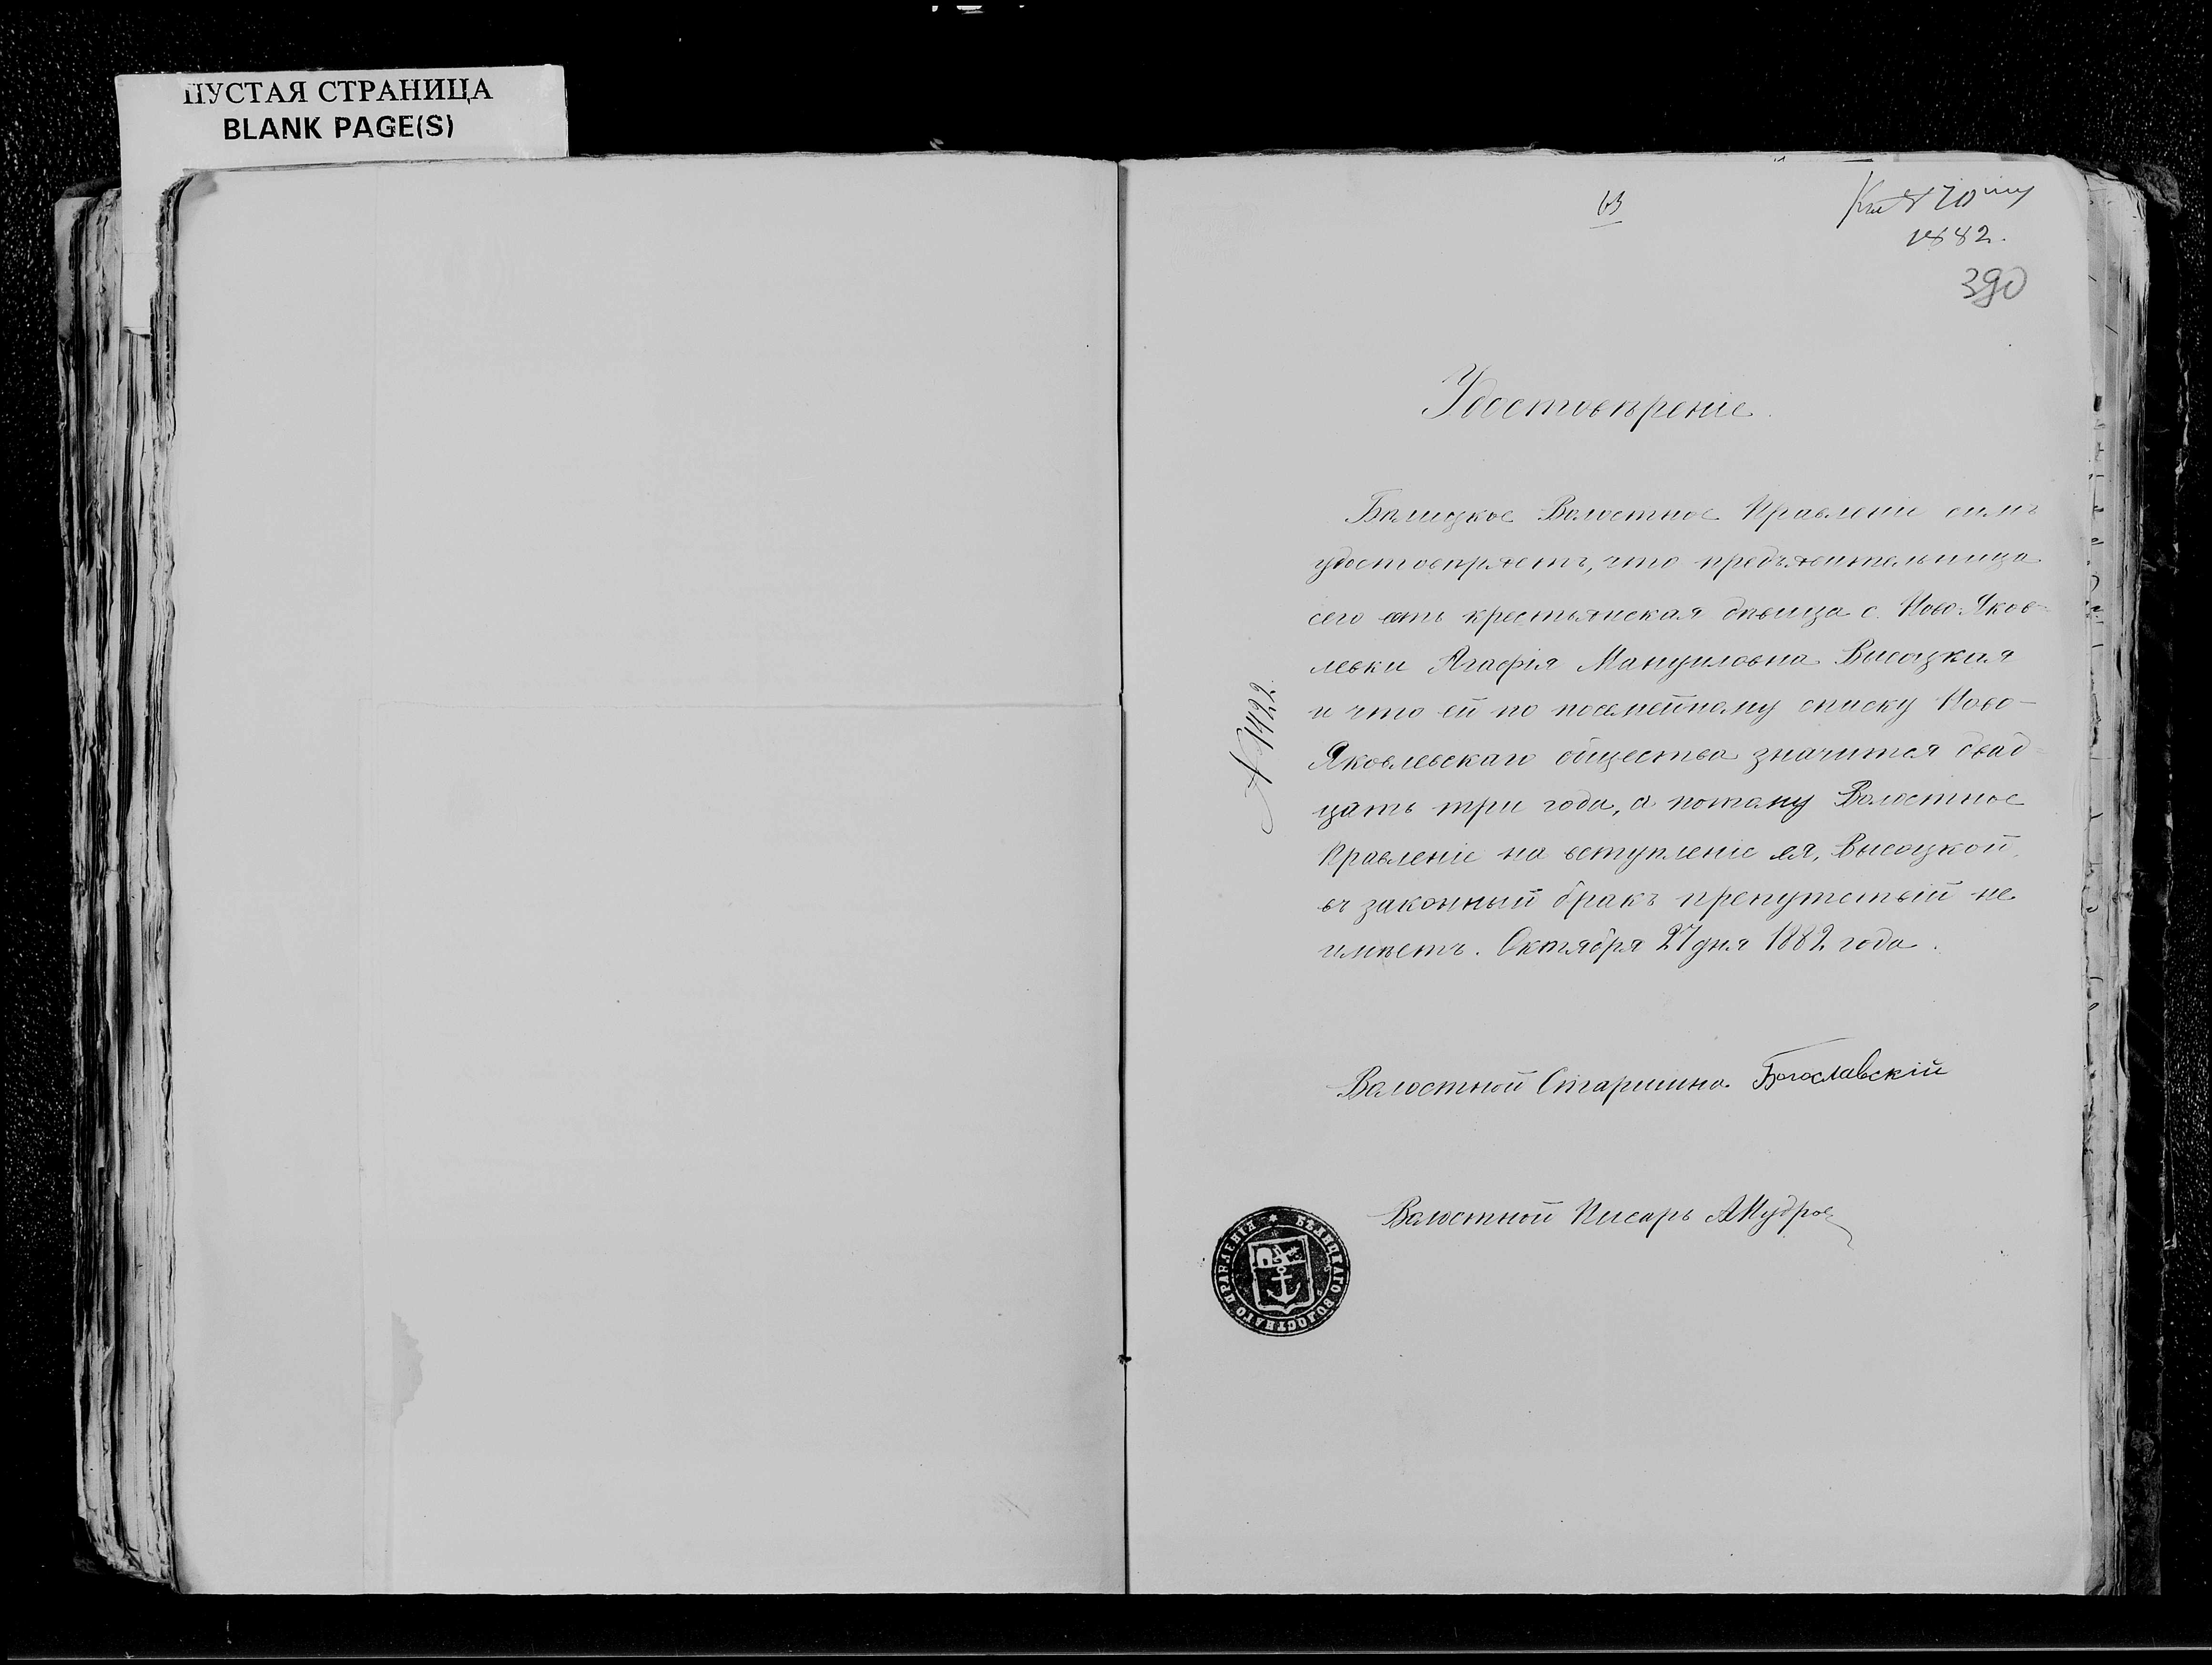 ПУСТАЯ СТРАНИЦА
BLANK PAGE(S)
63
Къ № 70му
1882.
390
Удостовѣреніе.
Бѣлицкое Волостное Правленіе симъ
удостовѣряетъ, что предъявительница
сего есть крестьянская дѣвица с. Ново-Яков-
левки Агафія Мануиловна Высоцкая
и что ей по посемейному списку Ново-
Яковлевскаго общества значится двад-
цать три года, а потому Волостное
Правленіе на вступленіе ея, Высоцкой,
въ законный бракъ препутствій не
имѣетъ. Октября 27 дня 1882 года.
№ 1422.
Волостной Старшина Богославскій
Волостной Писарь АМудров
* БѢЛИЦКАГО ВОЛОСТНАГО ПРАВЛЕНІЯ